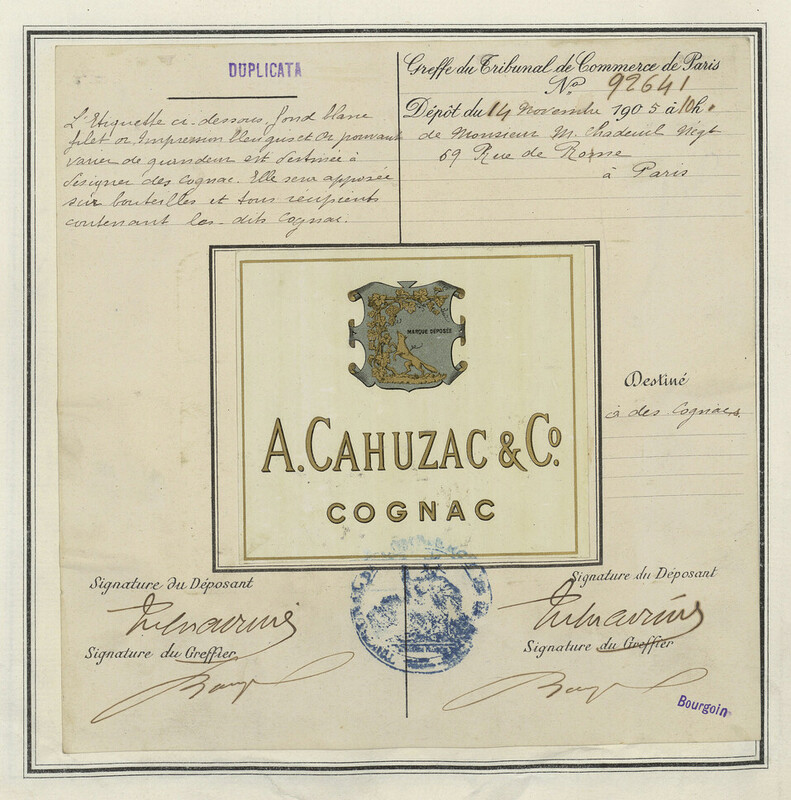 DUPLICATA
L'Etiquette ci-dessous, fond blanc
filet or, Impression bleu gris et Or pouvant
varier de grandeur est destinée à
désigner des Cognac. Elle sera apposée
sur bouteilles et tous récipients
contenant les dits Cognac.
Greffe du Tribunal de Commerce de Paris
No 92641
Dépôt du 14 Novembre 1905 à 10h.
de Monsieur M. Chadeuil Négt
69 Rue de Rome
à Paris
MARQUE DÉPOSÉE
A. CAHUZAC & Co.
COGNAC
Destiné
à des Cognacs.
Signature du Déposant
Signature du Greffier
Signature du Déposant
Signature du Greffier
Bourgoin